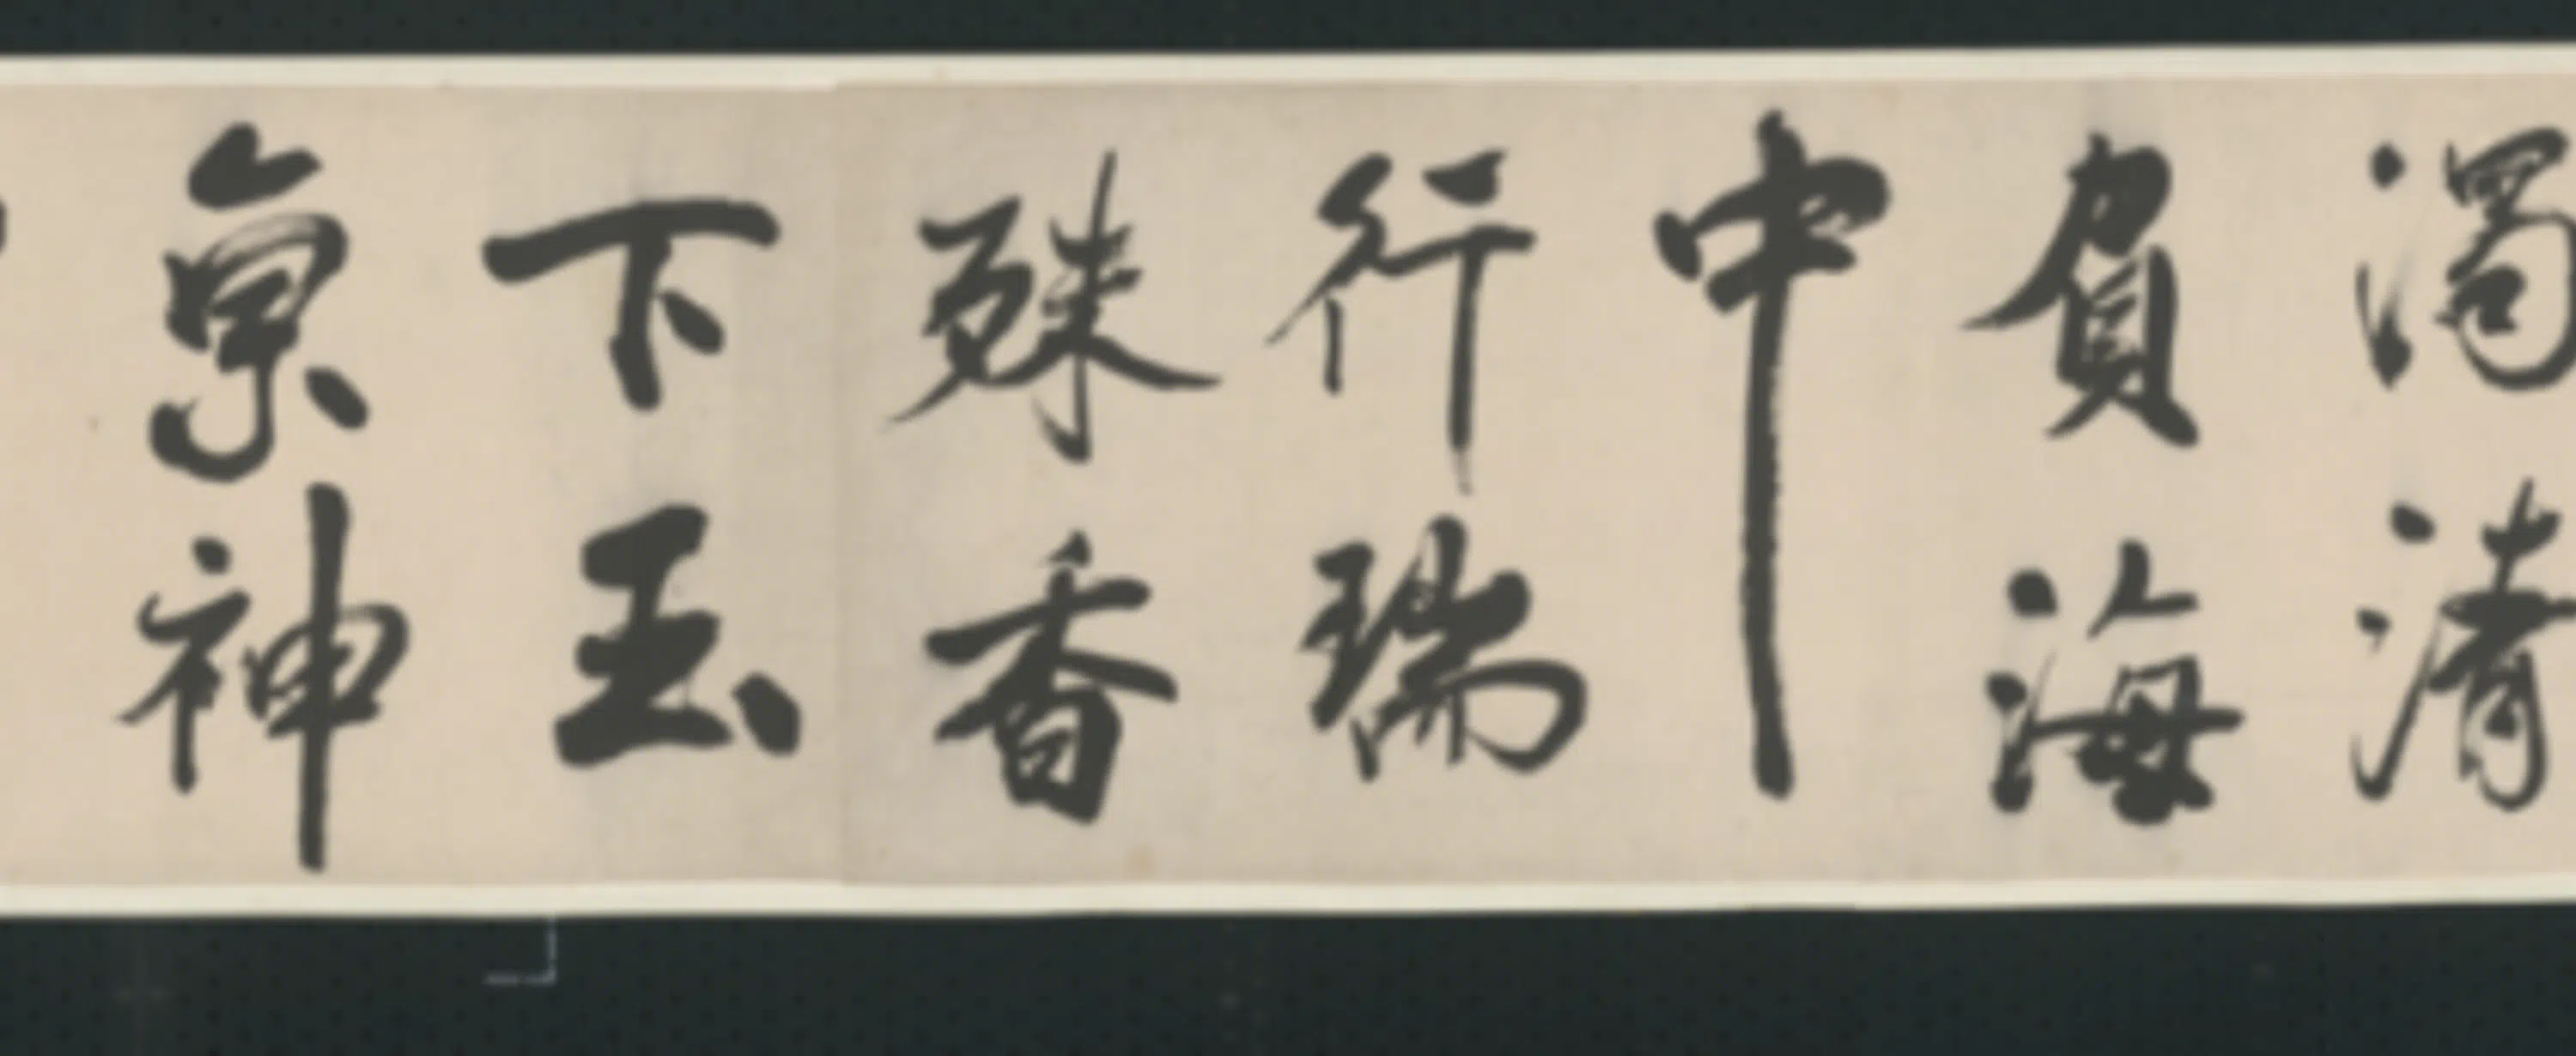 濁清
負海
中
行瑞
殊香
下玉
京神